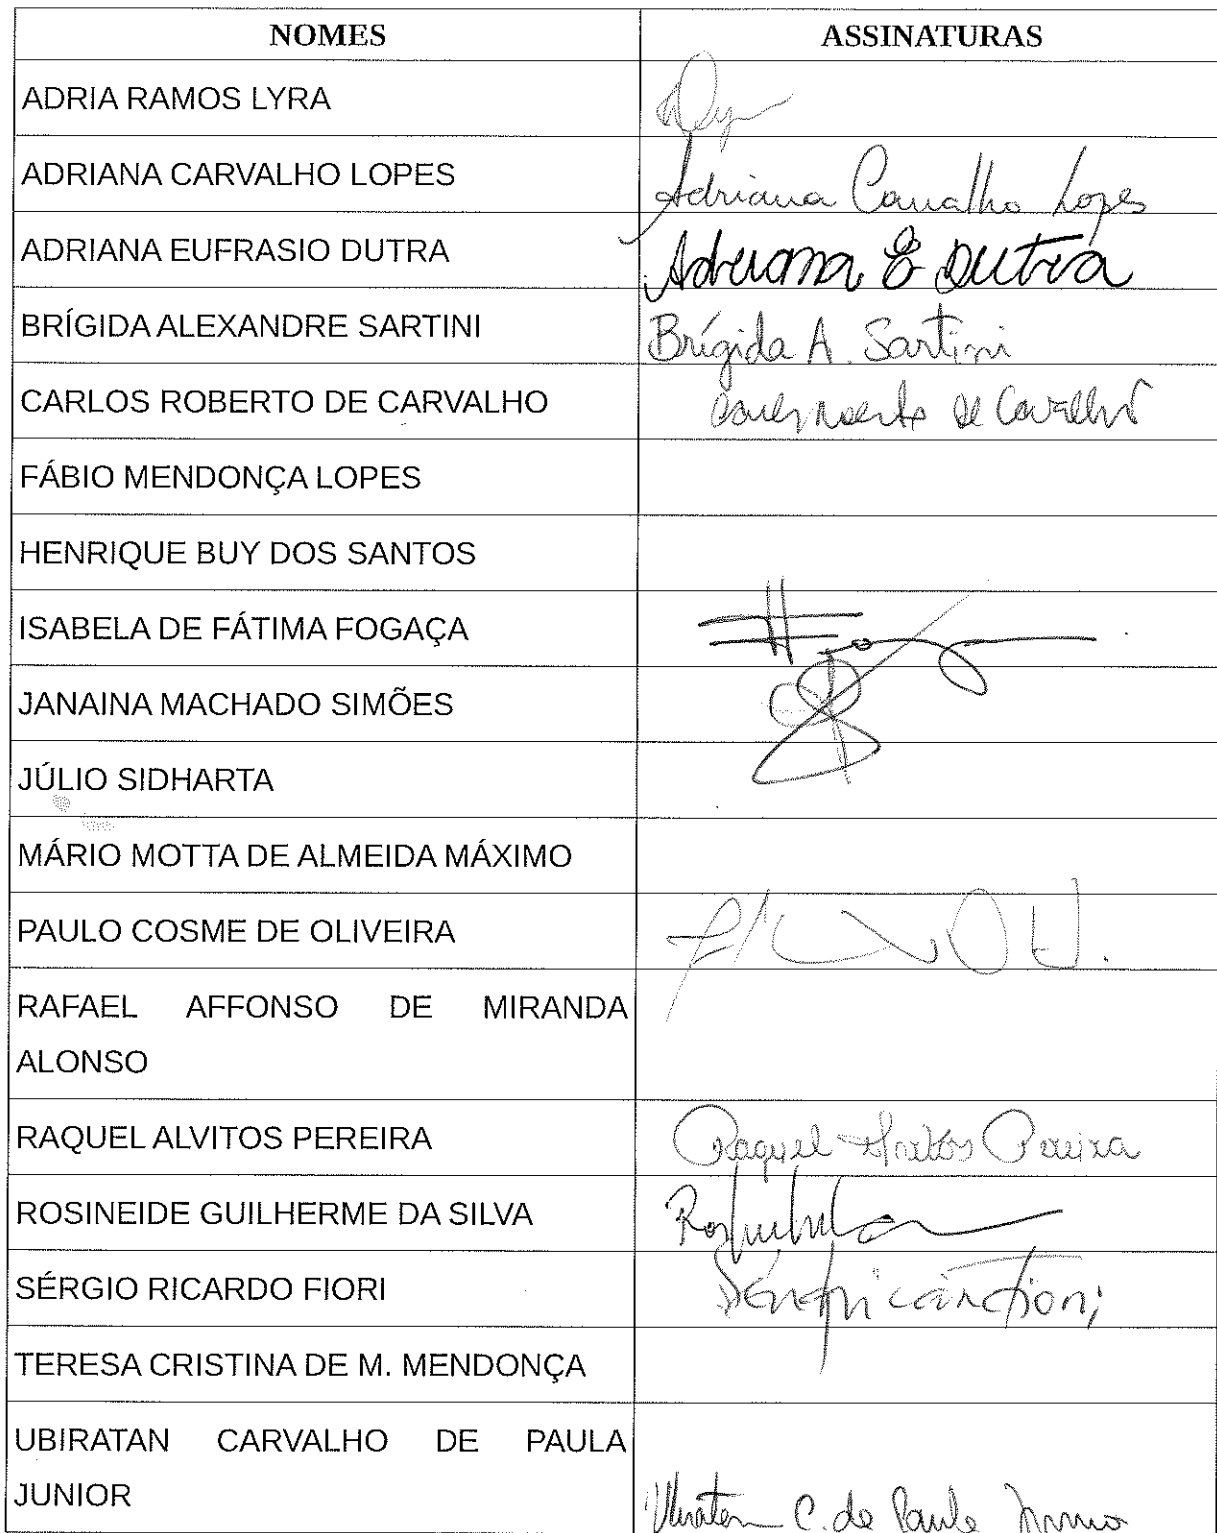 NOMES ASSINATURAS
ADRIA RAMOS LYRA
ADRIANA CARVALHO LOPES Adriana Carvalho Lopes
ADRIANA EUFRASIO DUTRA Adriana E Dutra
BRÍGIDA ALEXANDRE SARTINI Brígida A. Sartini
CARLOS ROBERTO DE CARVALHO de Carvalho
FÁBIO MENDONÇA LOPES
HENRIQUE BUY DOS SANTOS
ISABELA DE FÁTIMA FOGAÇA
JANAINA MACHADO SIMÕES
JÚLIO SIDHARTA
MÁRIO MOTTA DE ALMEIDA MÁXIMO
PAULO COSME DE OLIVEIRA
RAFAEL AFFONSO DE MIRANDA
ALONSO
RAQUEL ALVITOS PEREIRA Raquel Alvitos Pereira
ROSINEIDE GUILHERME DA SILVA
SÉRGIO RICARDO FIORI
TERESA CRISTINA DE M. MENDONÇA
UBIRATAN CARVALHO DE PAULA
JUNIOR Ubiratan C. de Paula Junior